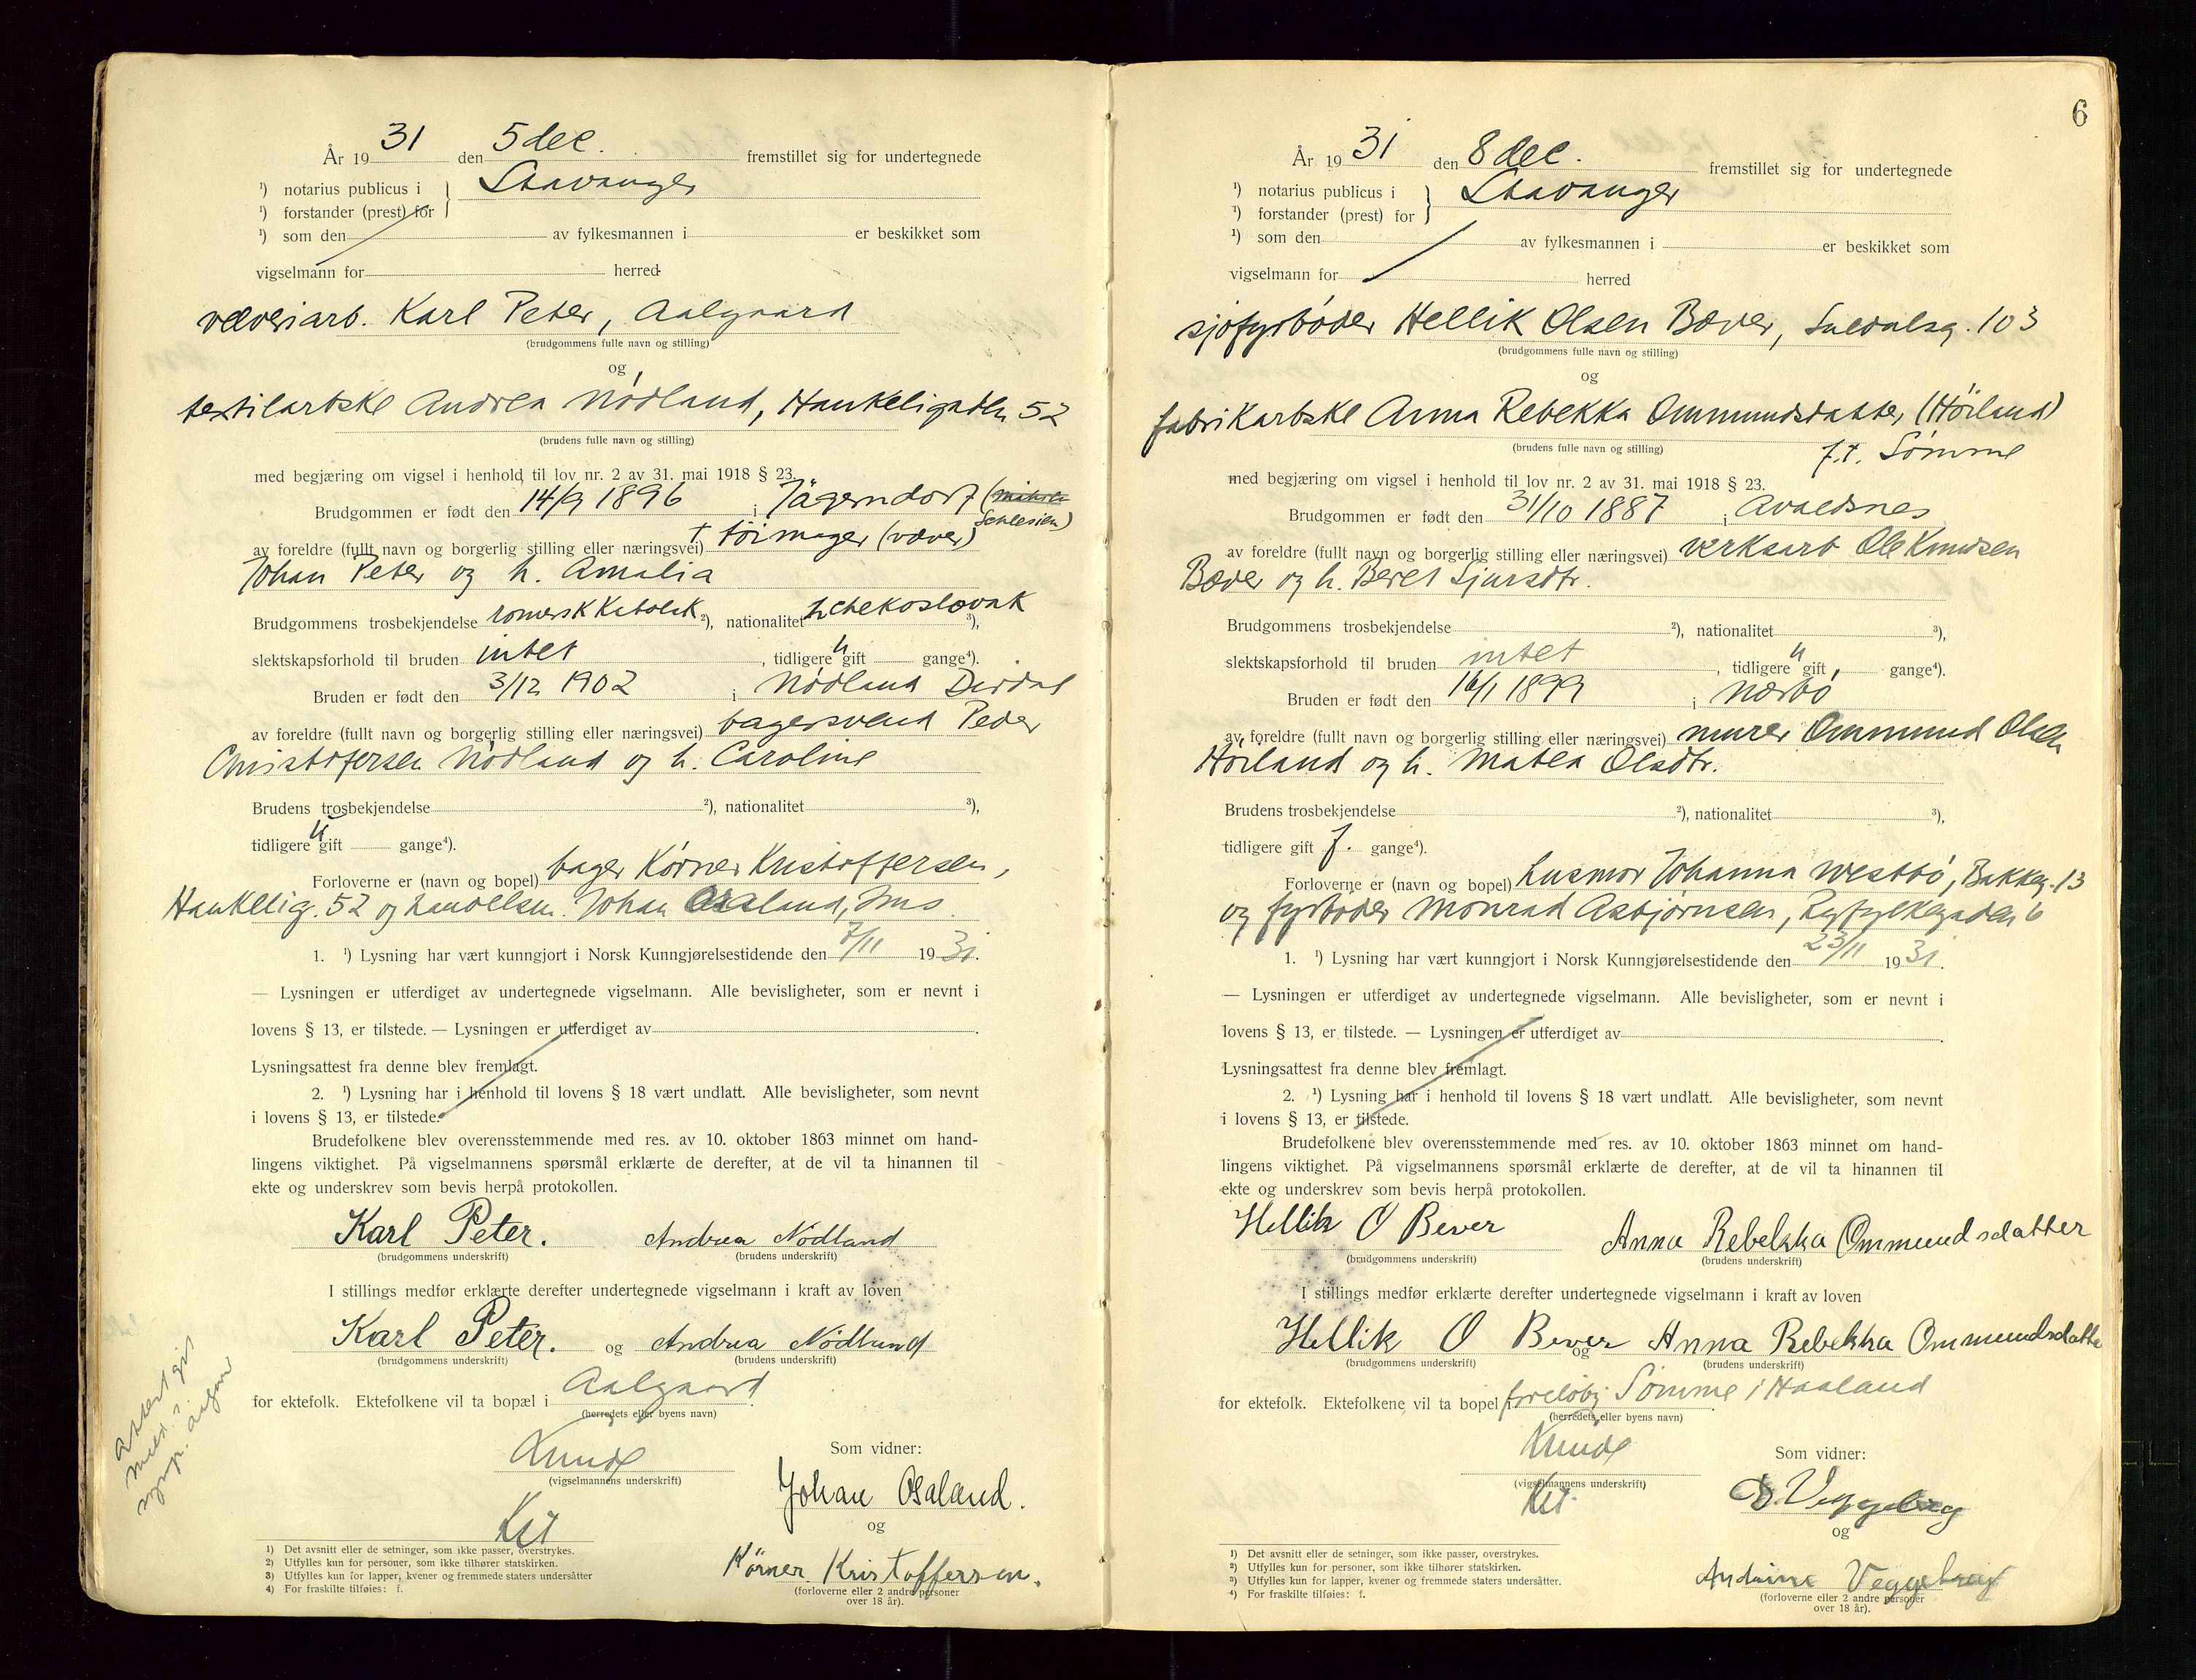 År 19 31 den 5 dec. fremstillet sig for undertegnede
¹) notarius publicus i } Stavanger
¹) forstander (prest) for
¹) som den av fylkesmannen i er beskikket som
vigselmann for herred
væveriarb. Karl Peter, Aalgaard
(brudgommens fulle navn og stilling)
og
textilarbske Andrea Nödland, Haukeligaden 52
(brudens fulle navn og stilling)
med begjæring om vigsel i henhold til lov nr. 2 av 31. mai 1918 § 23.
Brudgommen er født den 14/9 1896 i Jägerndorf (
Schlesien)
av foreldre (fullt navn og borgerlig stilling eller næringsvei) † töimager (væver)
Johan Peter og h. Amalia
Brudgommens trosbekjendelse romersk Katolsk ²), nationalitet tchekoslovak ³),
slektskapsforhold til bruden intet, tidligere u gift gange⁴).
Bruden er født den 3/12 1902 i Nödland Dirdal
av foreldre (fullt navn og borgerlig stilling eller næringsvei) bagersvend Peder
Christofersen Nödland og h. Caroline
Brudens trosbekjendelse ²), nationalitet ³),
tidligere u gift gange⁴).
Forloverne er (navn og bopel) bager Körner Kristoffersen,
Haukelig. 52 og handelsm. Johan Osaland, Ims.
1. ¹) Lysning har vært kunngjort i Norsk Kunngjørelsestidende den 7/11 19 31.
— Lysningen er utferdiget av undertegnede vigselmann. Alle bevisligheter, som er nevnt i
lovens § 13, er tilstede. — Lysningen er utferdiget av .
Lysningsattest fra denne blev fremlagt.
2. ¹) Lysning har i henhold til lovens § 18 vært undlatt. Alle bevisligheter, som nevnt
i lovens § 13, er tilstede.
Brudefolkene blev overensstemmende med res. av 10. oktober 1863 minnet om hand-
lingens viktighet. På vigselmannens spørsmål erklærte de derefter, at de vil ta hinannen til
ekte og underskrev som bevis herpå protokollen.
Karl Peter. Andrea Nödland
(brudgommens underskrift) (brudens underskrift)
I stillings medfør erklærte derefter undertegnede vigselmann i kraft av loven
Karl Peter. og Andrea Nödland
(brudgommens underskrift) (brudens underskrift)
for ektefolk. Ektefolkene vil ta bopæl i Aalgaard.
(herredets eller byens navn)
Attest git
Som vidner:
(vigselmannens underskrift)
Johan Osaland.
og
Körner Kristoffersen.
(forloverne eller 2 andre personer
over 18 år).
1) Det avsnitt eller de setninger, som ikke passer, overstrykes.
2) Utfylles kun for personer, som ikke tilhører statskirken.
3) Utfylles kun for lapper, kvener og fremmede staters undersåtter
4) For fraskilte tilføies: f.
6
År 19 31 den 8 dec. fremstillet sig for undertegnede
¹) notarius publicus i } Stavanger
¹) forstander (prest) for
¹) som den av fylkesmannen i er beskikket som
vigselmann for herred
sjöfyrböder Hellik Olsen Bæver, Suldalsg. 103
(brudgommens fulle navn og stilling)
og
fabrikarbske Anna Rebekka Ommundsdatter (Höiland)
(brudens fulle navn og stilling) f.t. Sömme
med begjæring om vigsel i henhold til lov nr. 2 av 31. mai 1918 § 23.
Brudgommen er født den 31/10 1887 i Avaldsnes
av foreldre (fullt navn og borgerlig stilling eller næringsvei) verksarb Ole Knudsen
Bæver og h. Beret Sjursdtr.
Brudgommens trosbekjendelse ²), nationalitet ³),
slektskapsforhold til bruden intet, tidligere u gift gange⁴).
Bruden er født den 16/1 1899 i Nærbö
av foreldre (fullt navn og borgerlig stilling eller næringsvei) murer Ommund Olsen
Höiland og h. Matea Olsdtr.
Brudens trosbekjendelse ²), nationalitet ³),
tidligere gift f. gange⁴).
Forloverne er (navn og bopel) husmor Johanna Westbö, Bakkeg. 13
og fyrböder Monrad Asbjörnsen, Ryfylkegaden 6
1. ¹) Lysning har vært kunngjort i Norsk Kunngjørelsestidende den 23/11 19 31.
— Lysningen er utferdiget av undertegnede vigselmann. Alle bevisligheter, som er nevnt i
lovens § 13, er tilstede. — Lysningen er utferdiget av .
Lysningsattest fra denne blev fremlagt.
2. ¹) Lysning har i henhold til lovens § 18 vært undlatt. Alle bevisligheter, som nevnt
i lovens § 13, er tilstede.
Brudefolkene blev overensstemmende med res. av 10. oktober 1863 minnet om hand-
lingens viktighet. På vigselmannens spørsmål erklærte de derefter, at de vil ta hinannen til
ekte og underskrev som bevis herpå protokollen.
Hellik O Bever Anna Rebekka Ommundsdatter
(brudgommens underskrift) (brudens underskrift)
I stillings medfør erklærte derefter undertegnede vigselmann i kraft av loven
Hellik O Bever og Anna Rebekka Ommundsdatte
(brudgommens underskrift) (brudens underskrift)
for ektefolk. Ektefolkene vil ta bopel foreløbig Sömme i Haaland
(herredets eller byens navn)
Som vidner:
(vigselmannens underskrift)
Veggeberg
og
Andrine Veggeberg
(forloverne eller 2 andre personer
over 18 år).
1) Det avsnitt eller de setninger, som ikke passer, overstrykes.
2) Utfylles kun for personer, som ikke tilhører statskirken.
3) Utfylles kun for lapper, kvener og fremmede staters undersåtter.
4) For fraskilte tilføies: f.